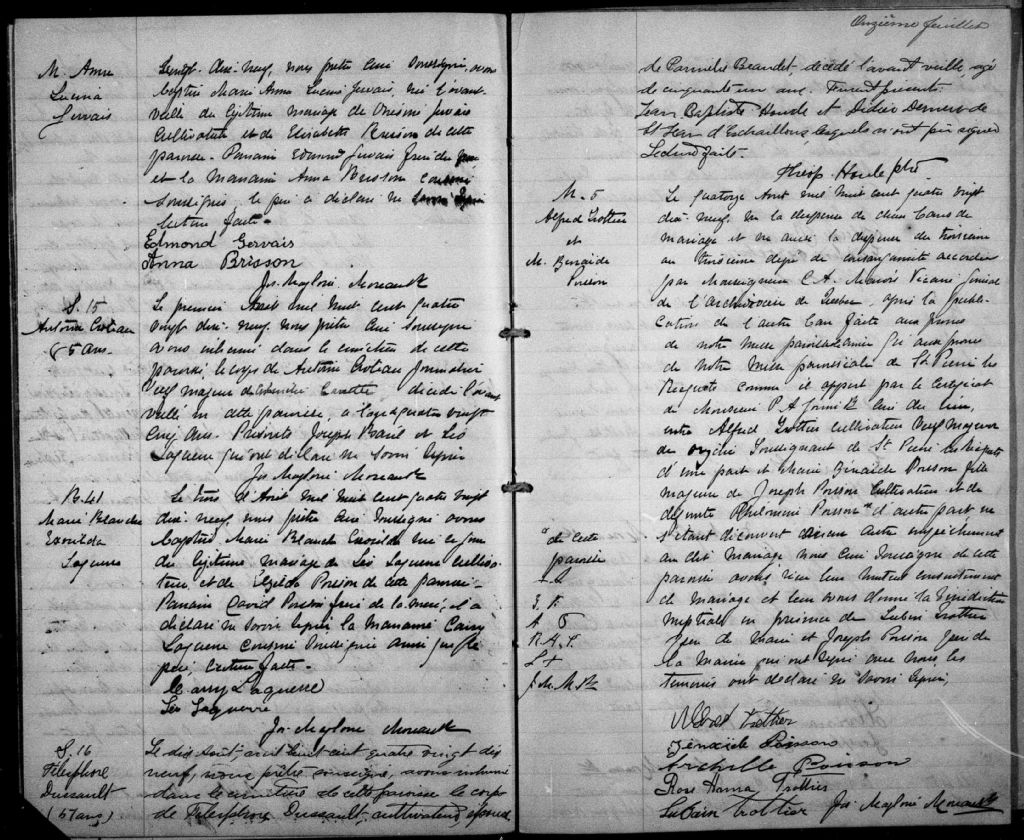 M. Anna
Lucina
Gervais
dix-neuf, nous prêtre curé soussigné, avons
baptisé Marie Anna Gervais, née l'avant
veille du légitime mariage de Gervais
cultivateur et de Elisabeth Brisson de cette
paroisse. Parrain Edmond Gervais frère de
et la Marraine Anna Brisson cousine
soussignés, le père a déclaré ne savoir signer
lecture faite.
Edmond Gervais
Anna Brisson
Jos. Magloire Moreault
S. 15
85 ans
Le premier Août mil huit cent quatre
vingt dix-neuf, nous prêtre curé soussigné
avons inhumé dans le cimetière de cette
paroisse, le corps de Antoine journalier
veuf majeur de décédé l'avant
veille en cette paroisse, à l'age de quatre vingt
cinq ans. Présents Joseph et Léo
Laguerre qui ont déclaré ne savoir signer
Jos Magloire Moreault
B. 41
Marie Blanche
Exorilda
Laguerre
Le trois d'Août mil huit cent quatre vingt
dix-neuf, nous prêtre curé soussigné avons
baptisé Marie Blanche Exorilda née ce jour
du légitime mariage de Léo Laguerre cultiva-
teur et de Poisson de cette paroisse.
Parrain David Poisson frère de la mère, il a
déclaré ne savoir signer la Marraine
Laguerre cousine soussignée ainsi que le
père, lecture faite.
Laguerre
Léo Laguerre
Jos. Magloire Moreault
S. 16
Télesphore
Dussault
(51 ans)
Le dix août, mil huit cent quatre vingt dix
neuf, nous prêtre soussigné, avons inhumé
dans le cimetière de cette paroisse le corps
de Télesphore Dussault, cultivateur, époux
Onzième feuillet
de Pamélie Beaudet, décédé l'avant veille, agé
de cinquante un ans. Furent présents
Jean Baptiste Houle et Didier Demers de
St Jean d'Echaillons, lesquels n'ont pu signer
Lecture faite.
Théop. Houle ptre
M. 5
Alfred Trottier
et
M. Zénaïde
Poisson
Le quatorze Août mil huit cent quatre vingt
dix-neuf, vu la dispense de deux bans de
mariage et vu aussi la dispense du troisième
au troisième degré de consanguinité accordée
par Monseigneur C. A. Marois Vicaire Général
de l'Archidiocèse de Québec, après la publi-
cation de l'autre ban faite aux prônes
de notre messe paroissiale
de notre messe paroissiale de St Pierre les
Becquets comme il appert par le certificat
de Monsieur P. A. curé du lieu,
entre Alfred Trottier cultivateur veuf majeur
de de St Pierre les Becquets
d'une part et Marie Zénaïde Poisson fille
majeure de Joseph Poisson cultivateur et de
défunte Philomène Poisson d'autre part ne
s'étant découvert aucun autre empêchement
au dit mariage nous curé soussigné de cette
paroisse avons reçu leur mutuel consentement
de mariage et leur avons donné la bénédiction
nuptiale en présence de Lubin Trottier
père du Marié et Joseph Poisson père de
la Mariée qui ont signé avec nous les
témoins ont déclaré ne savoir signer,
" de cette
paroisse
Z. P.
A. T
R. A. T.
L. T
J. M. M. Ptre
Alfred trottier
Zénaïde Poisson
Poisson
Rose Hanna Trottier
Lubin trottier
Jos. Magloire Moreault